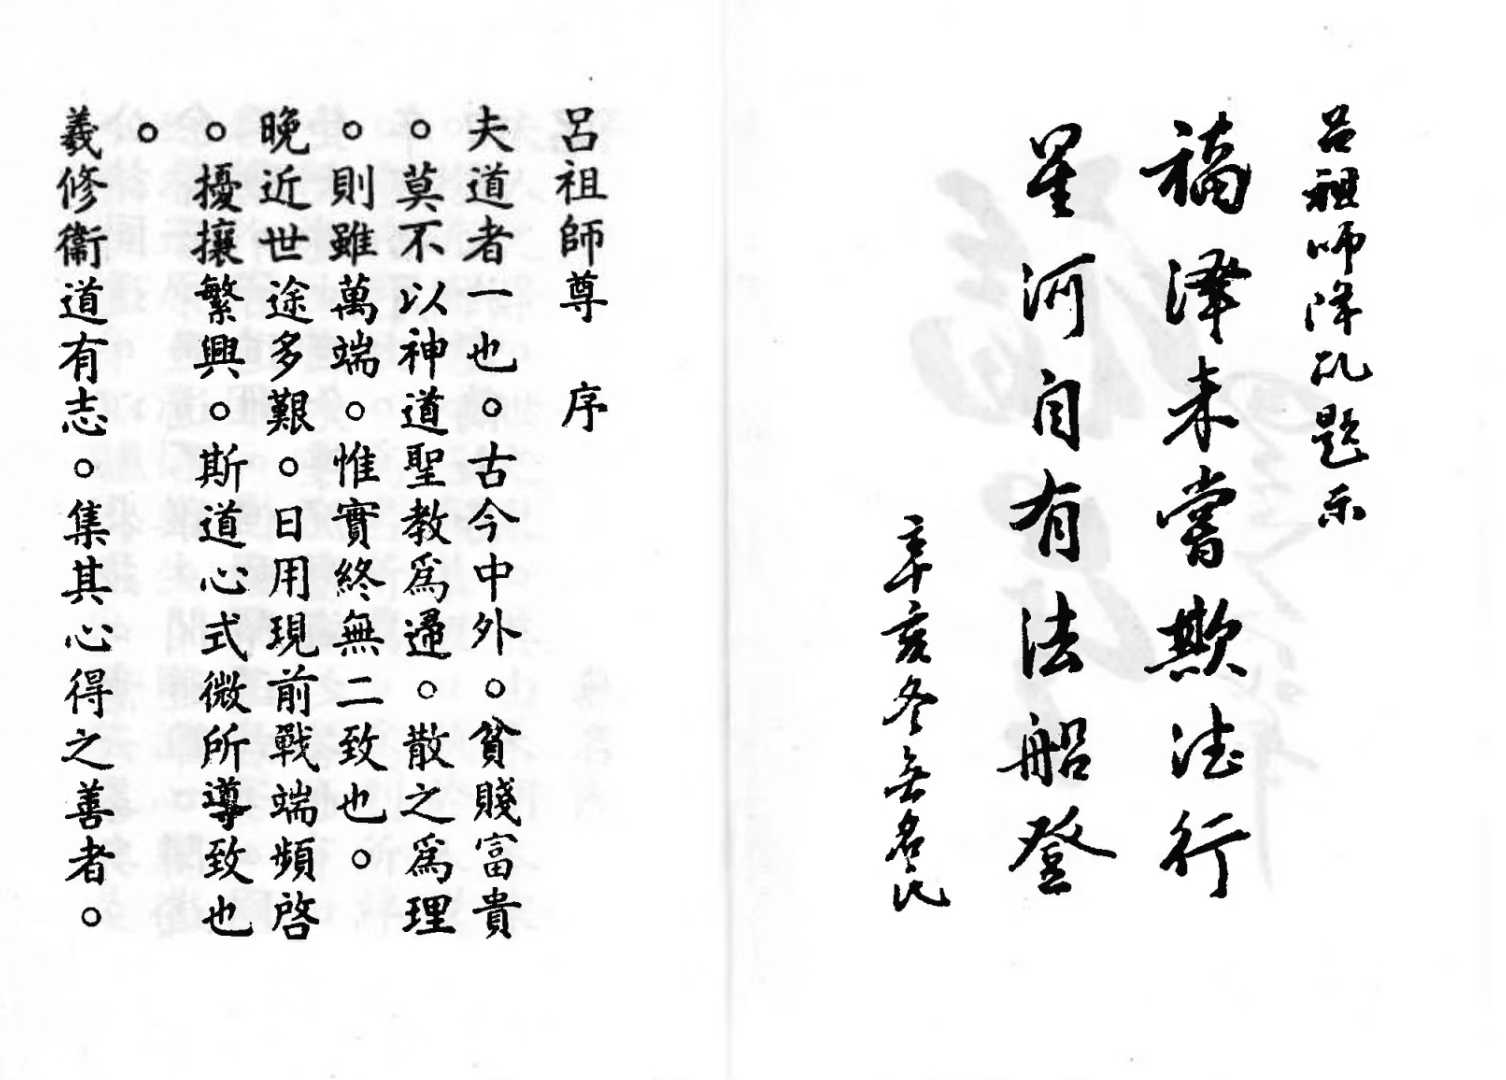 呂祖師降乩題示
福澤未嘗欺德行
星河自有法船登
辛亥冬無名氏
呂祖師尊　序
夫道者一也。古今中外。貧賤富貴
。莫不以神道聖教爲遵。散之爲理
。則雖萬端。惟實終無二致也。
晚近世途多艱。日用現前戰端頻啓
。擾攘繁興。斯道心式微所導致也
。
羲修衞道有志。集其心得之善者。